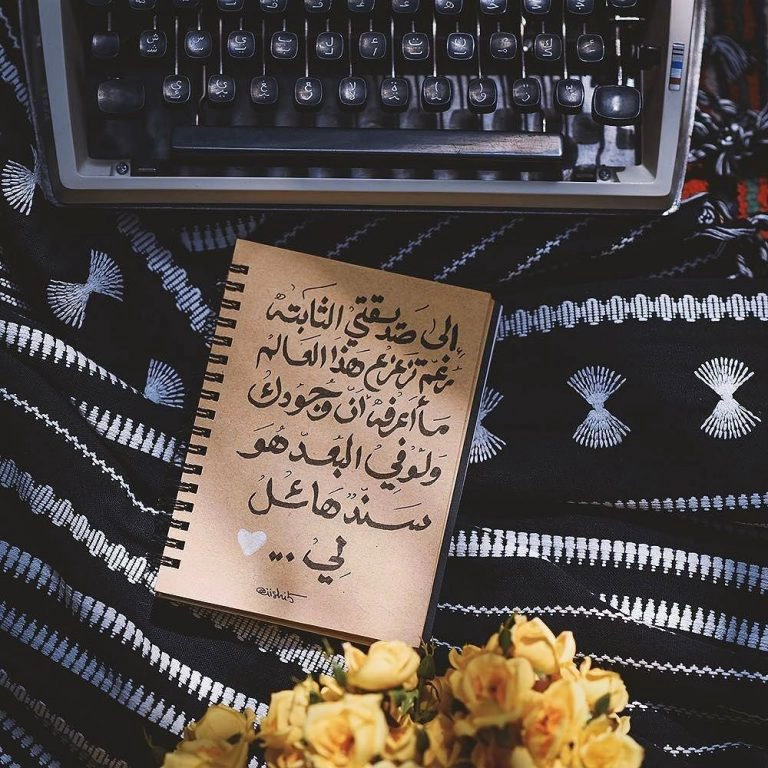 إلى صديقتي الثابته
رغم تزعزع هذا العالم
ما أعرفه أنّ وجودك
ولو في البُعد هو
سند هائل
لي ...